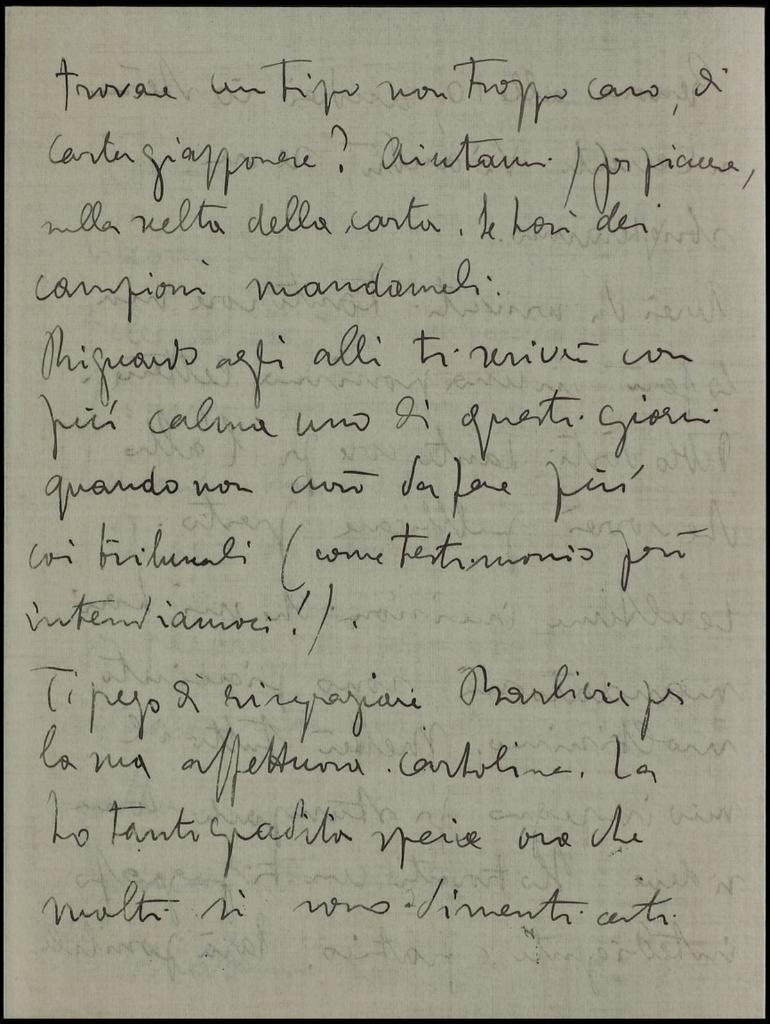 trovare un tipo non troppo caro, di
carta giapponese? Aiutami, per piacere,
nella scelta della carta. Se hai dei
campioni mandameli.
Riguardo agli altri ti scriverò con
più calma uno di questi giorni
quando non avrò da fare più
coi tribunali (come testimonio però
intendiamoci!).
Ti prego di ringraziare Barbieri per
la sua affettuosa cartolina. La
ho tanto gradita specie ora che
molti si sono dimenticati.